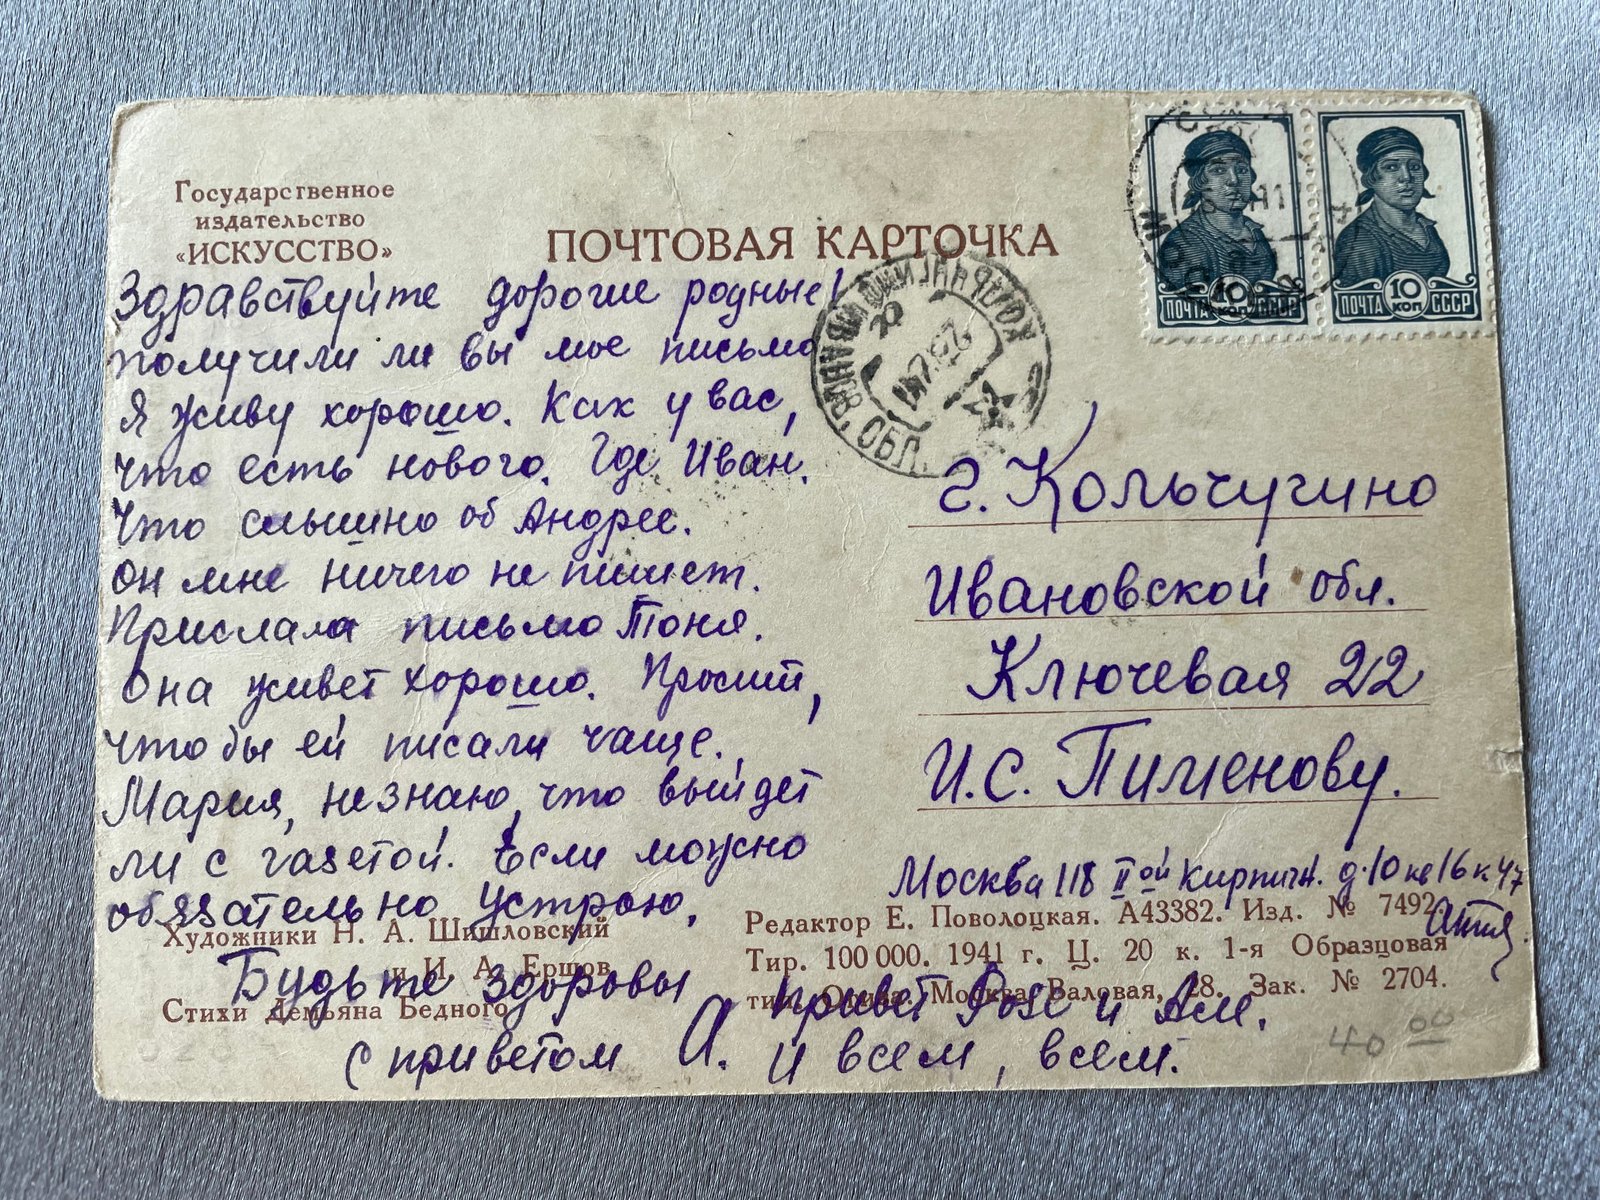 Государственное
издательство
«ИСКУССТВО»
ПОЧТОВАЯ КАРТОЧКА
ПОЧТА 10 КОП СССР
ПОЧТА 10 КОП СССР
Здравствуйте дорогие родные!
получили ли вы мое письмо
Я живу хорошо. Как у вас,
что есть нового. Где Иван.
Что слышно об Андрее.
Он мне ничего не пишет.
Прислала письмо Тоня.
Она живет хорошо. Просит,
чтобы ей писали чаще.
Мария, не знаю, что выйдет
ли с газетой. Если можно
обязательно устрою.
Будьте здоровы
с приветом А.
привет Розе и Ал.
и всем, всем.
г. Кольчугино
Ивановской обл.
Ключевая 22
И.С. Пименову.
Москва 118 II ой Кирпич. д. 10 к 47
Художники Н. А. Шишловский
и И. А. Ершов
Стихи Демьяна Бедного
Редактор Е. Поволоцкая. А43382. Изд. № 7492
Тир. 100 000. 1941 г. Ц. 20 к. 1-я Образцовая
тип. Огиза. Москва, Валовая, 28. Зак. № 2704.
40 00